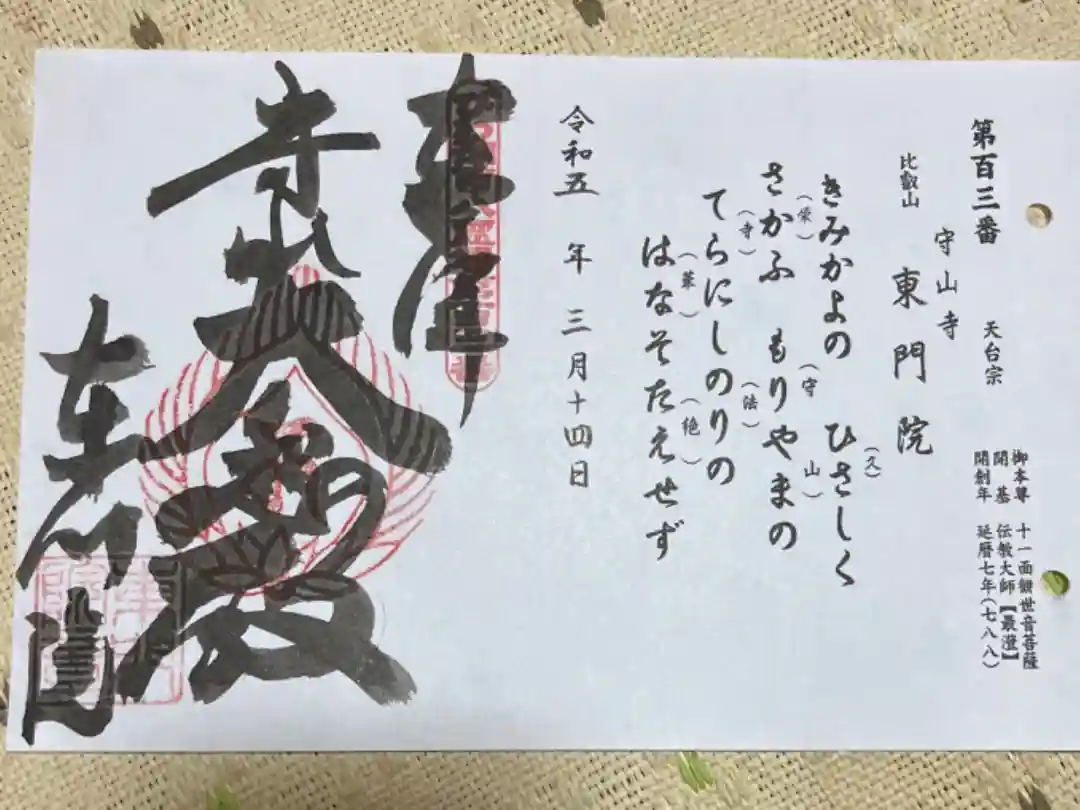 第百三番 天台宗
御本尊 十一面観世音菩薩
開基 伝教大師【最澄】
開創年 延暦七年(七八八)
守山寺
比叡山 東門院
きみかよの ひさしく
(久)
さかふ もりやまの
(栄) (守 山)
てらにしのりの
(寺) (法)
はなそたえせず
(華) (絶)
令和五年三月十四日
大
殿
東門院